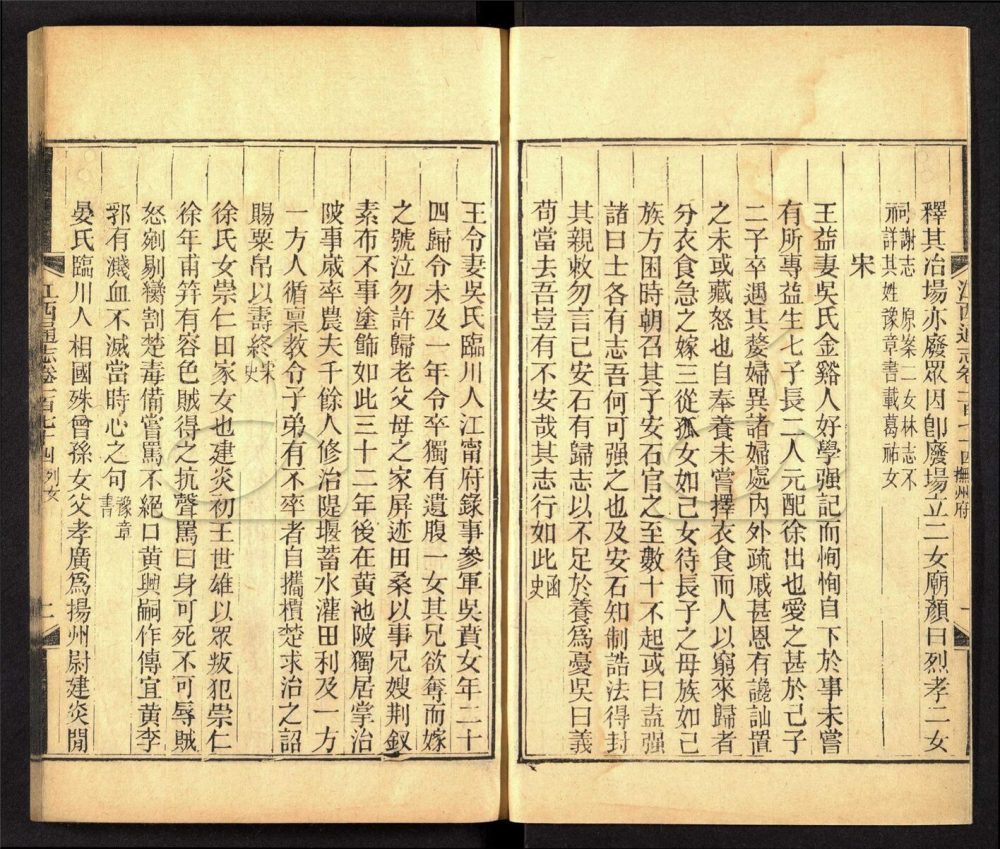 江西通志卷一百七十四 撫州府 一
釋其冶場亦廢眾因卽廢場立二女廟顏曰烈孝二女
祠謝志 原案二女林志不
祠詳其姓豫章書載葛祐女
宋
王益妻吳氏金谿人好學强記而恂恂自下於事未嘗
有所專益生七子長二人元配徐出也愛之甚於己子
二子卒遇其嫠婦異諸婦處內外疏戚甚恩有讒訕置
之未或藏怒也自奉養未嘗擇衣食而人以窮來歸者
分衣食急之嫁三從孤女如己女待長子之母族如己
族方困時朝召其子安石官之至數十不起或曰盍强
諸曰士各有志吾何可强之也及安石知制誥法得封
其親敕勿言己安石有歸志以不足於養爲憂吳曰義
苟當去吾豈有不安哉其志行如此函史
王令妻吳氏臨川人江甯府錄事參軍吳蕡女年二十
四歸令未及一年令卒獨有遺腹一女其兄欲奪而嫁
之號泣勿許歸老父母之家屏迹田桑以事兄嫂荆釵
素布不事塗飾如此三十二年後在黃池陂獨居掌治
陂事歲率農夫千餘人修治隄堰蓄水灌田利及一方
一方人循稟教令子弟有不率者自攜檟楚求治之詔
賜粟帛以壽終宋史
徐氏女崇仁田家女也建炎初王世雄以眾叛犯崇仁
徐年甫笄有容色賊得之抗聲罵曰身可死不可辱賊
怒剜剔臠割楚毒備嘗罵不絕口黃興嗣作傳宜黃李
郛有濺血不滅當時心之句豫章書
晏氏臨川人相國殊曾孫女父孝廣爲揚州尉建炎閒
江西通志卷一百七十四 列女 二